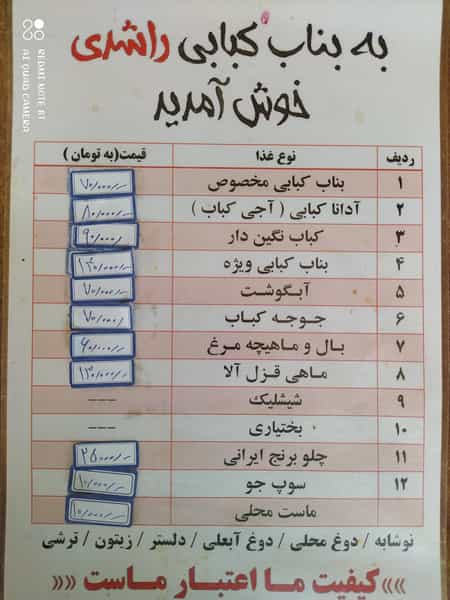 REDMI NOTE 8T
AI QUAD CAMERA
به بناب کبابی راشدی
خوش آمدید
ردیف نوع غذا قیمت(به تومان )
۱ بناب کبابی مخصوص ۷۰/۰۰۰/--
۲ آدانا کبابی ( آجی کباب ) ۸۰/۰۰۰/--
۳ کباب نگین دار ۹۰/۰۰۰/
۴ بناب کبابی ویژه ۱۴۰/۰۰۰/--
۵ آبگوشت ۷۰/۰۰۰/--
۶ جوجه کباب ۷۰/۰۰۰/
۷ بال و ماهیچه مرغ ۶۰/۰۰۰/--
۸ ماهی قزل آلا ۱۳۰/۰۰۰/--
۹ شیشلیک ---
۱۰ بختیاری ---
۱۱ چلو برنج ایرانی ۲۵/۰۰۰/--
۱۲ سوپ جو ۱۰/۰۰۰/--
ماست محلی ۱۰/۰۰۰/--
نوشابه / دوغ محلی / دوغ آبعلی / دلستر / زیتون / ترشی
»»کیفیت ما اعتبار ماست ««